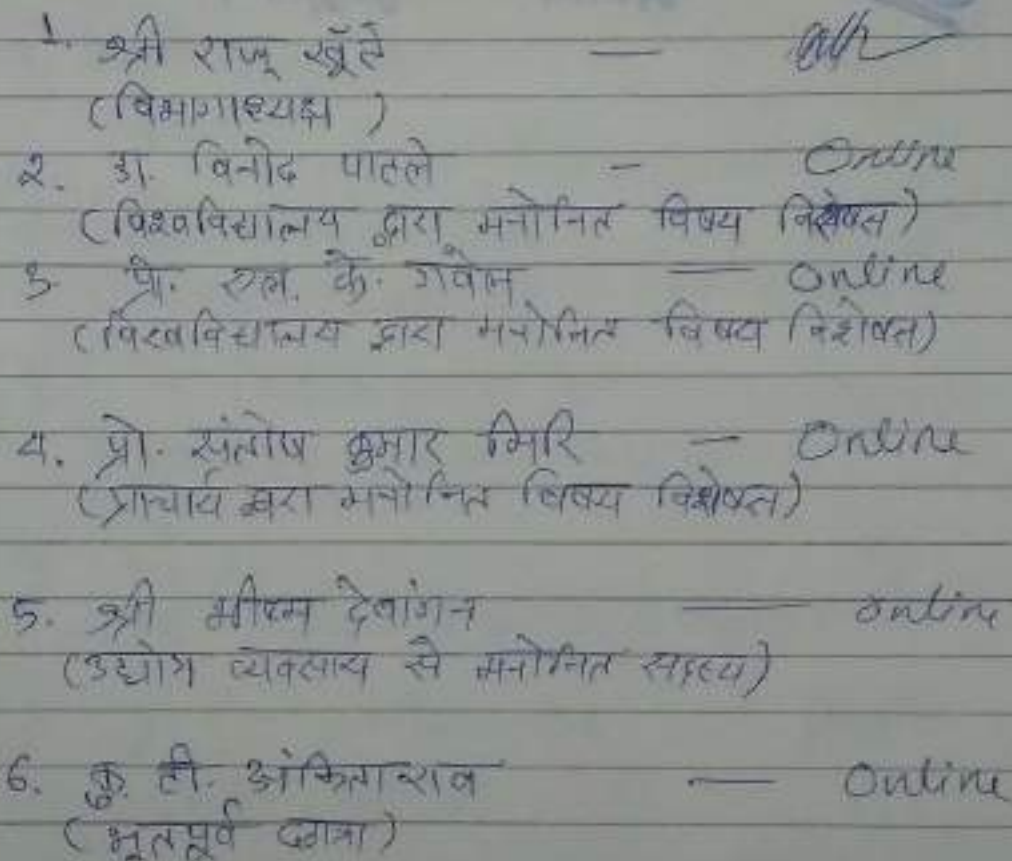 1. श्री राजू खूँटे —
(विभागाध्यक्ष )
2. डा. विनोद पाटले - Online
(विश्वविद्यालय द्वारा मनोनित विषय विशेषज्ञ)
3. प्रो. एल. के. गवेल — Online
(विश्वविद्यालय द्वारा मनोनित विषय विशेषज्ञ)
4. प्रो. संतोष कुमार मिरि — Online
(प्राचार्य द्वारा मनोनित विषय विशेषज्ञ)
5. श्री भीष्म देवांगन — online
(उद्योग व्यवसाय से मनोनित सदस्य)
6. कु. टी. अंकिता राव — Online
(भूतपूर्व छात्रा)